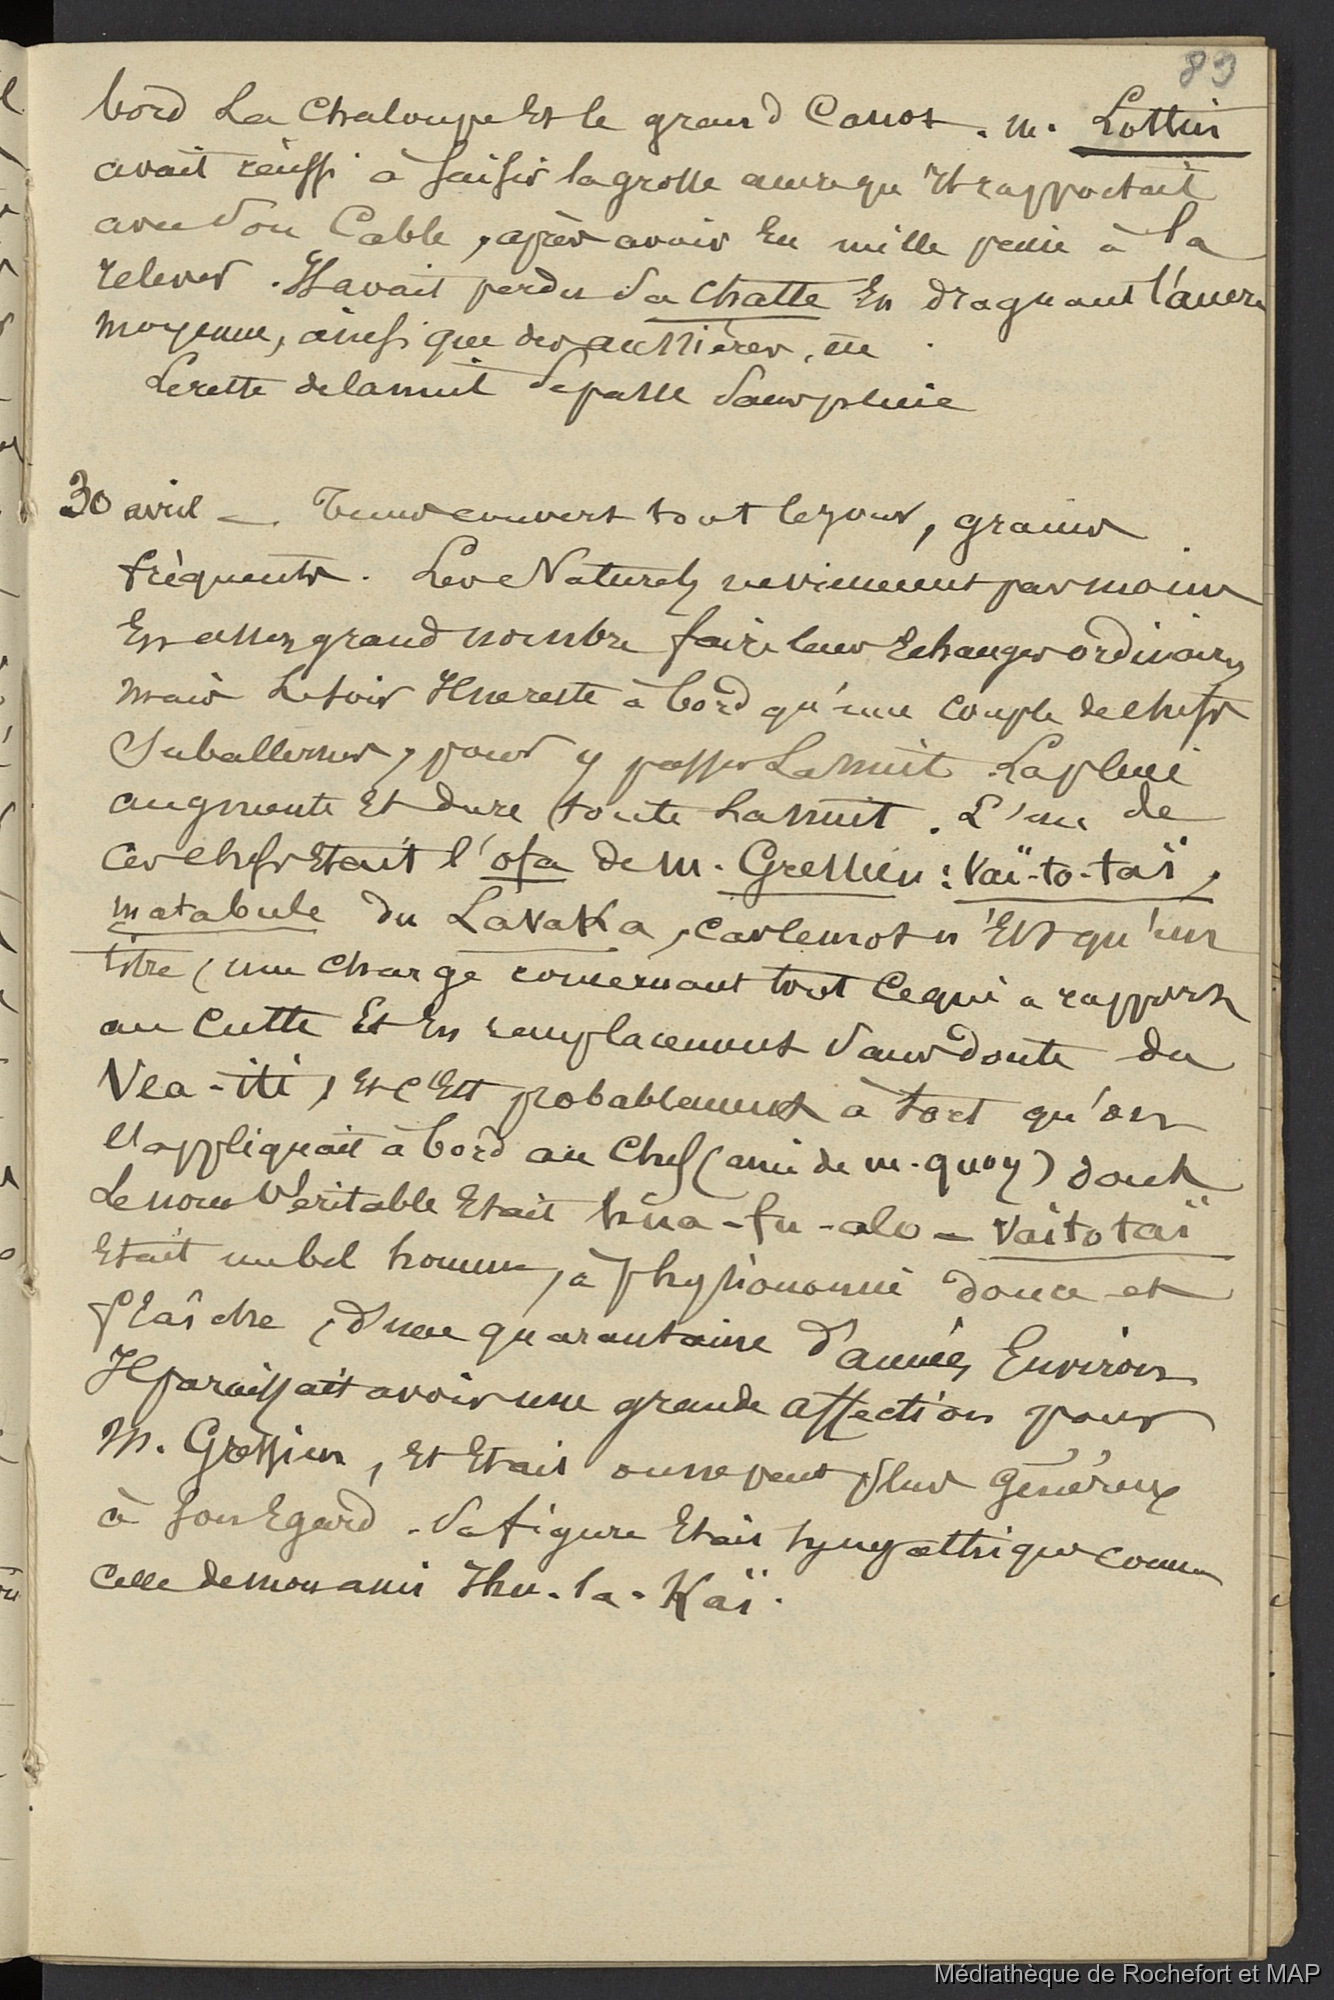 89
bord la chaloupe et le grand canot. m. Lottin
avait réussi à saisir la grosse ancre qu'il rapportait
avec son cable, après avoir eu mille peine à la
relever. Il avait perdu sa chatte en draguant l'ancre
moyenne, ainsi que des aussières,
Le reste de la nuit se passe sans pluie
30 avril — Temps couvert tout le jour, grains
fréquents. Les Naturels ne viennent pas moins
en assez grand nombre faire leurs échanges ordinaires
mais le soir il ne reste à bord qu'une couple de chefs
subalternes, pour y passer la nuit. La pluie
augmente et dure toute la nuit. L'un de
ces chefs était l'ofa de m. Gressien: Vaï-to-taï,
matabule du Lavaka, car le mot n'est qu'un
titre, une charge concernant tout ce qui a rapport
au culte et en remplacement sans doute du
Véa-iti, et c'est probablement à tort qu'on
l'appliquait à bord au chef (ami de m. quoy) dont
le nom véritable était hña-fu-alo — Vaïtotaï
était un bel homme, à physionomie douce et
flaîche, d'une quarantaine d'années environ
Il paraissait avoir une grande affection pour
M. Gressien, et était on ne peut plus généreux
à son égard. Sa figure était sympathique comme
celle de mon ami Ihu-la-Kaï.
Médiathèque de Rochefort et MAP